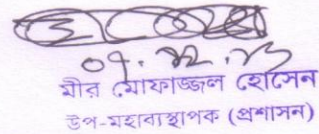 মীর মোফাজ্জল হোসেন
উপ-মহাব্যবস্থাপক (প্রশাসন)